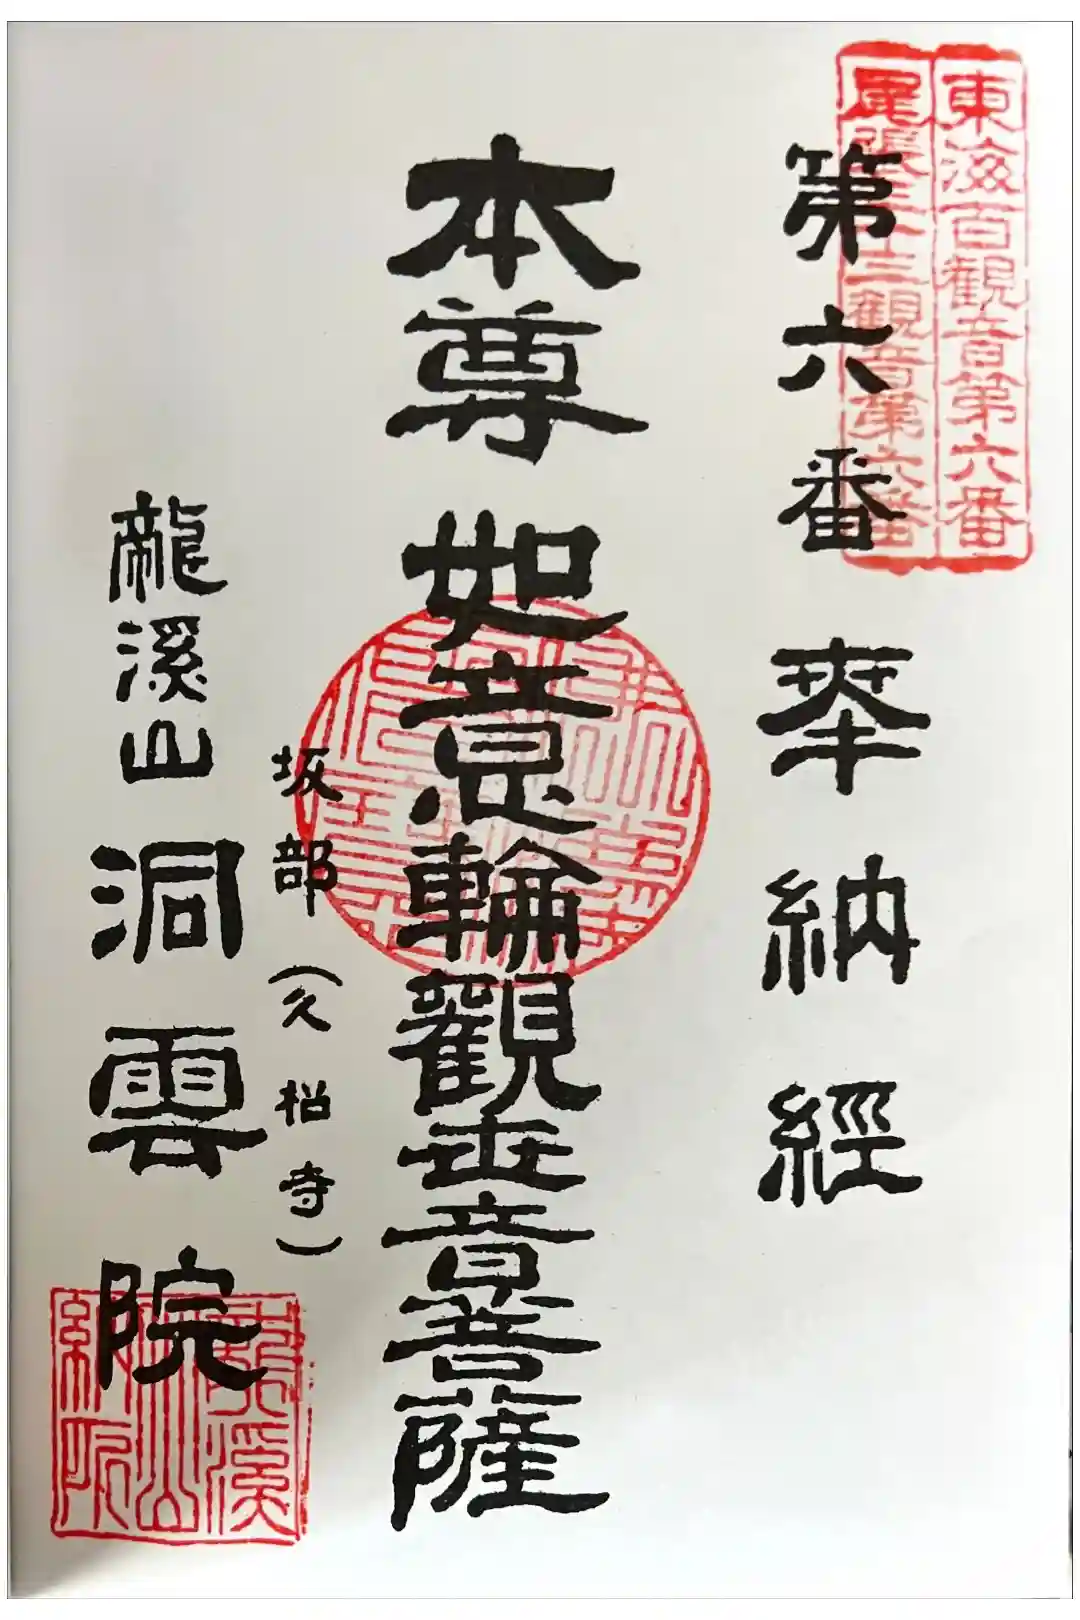 東海百觀音第六番
尾張三十三觀音第六番
第六番 奉納經
本尊 如意輪觀世音菩薩
坂部(久松寺)
龍溪山 洞雲院
龍溪
山
納所